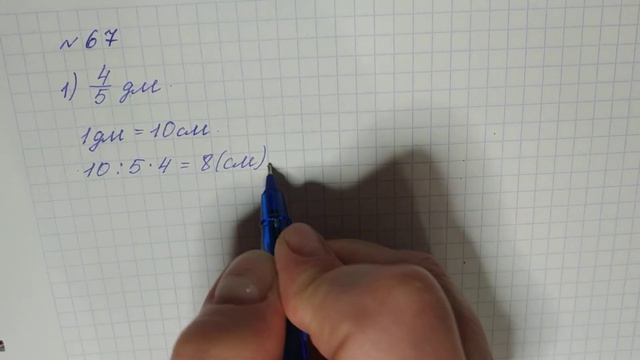 № 67
1) 4/5 дм.
1дм = 10см.
10 : 5 · 4 = 8 (см)